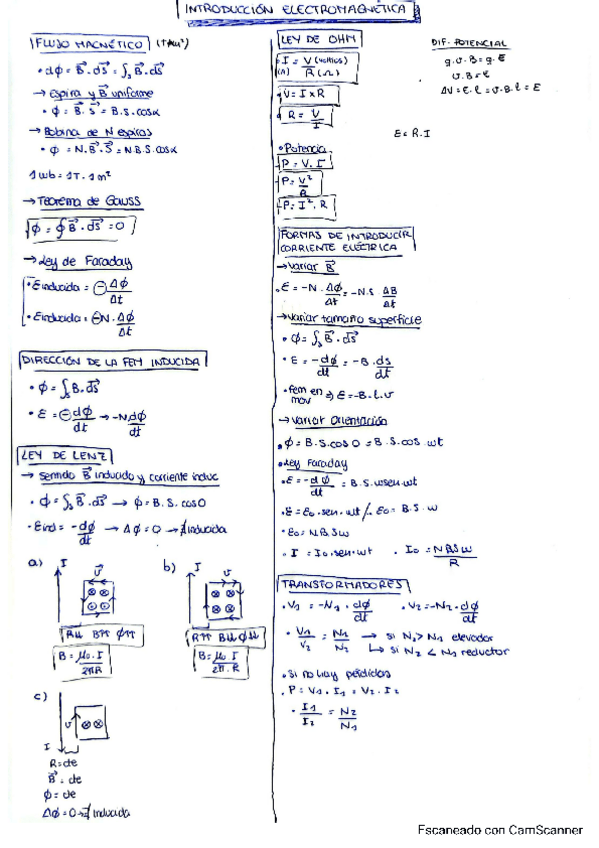 INTRODUCCIÓN ELECTROMAGNÉTICA
FLUJO MAGNÉTICO
• dΦ = B⃗ · dS⃗ = ∫s B⃗ · dS⃗
→ Espira y B⃗ uniforme
• Φ = B⃗ · S⃗ = B.S. cosα
→ Bobina de N espiras
• Φ = N.B⃗ · S⃗ = N.B.S. cosα
1 wb = 1T · 1m²
→ Teorema de Gauss
Φ = ∮ B⃗ · dS⃗ = 0
→ Ley de Faraday
• Ɛinducida = - ΔΦ/Δt
• Ɛinducida = -N · ΔΦ/Δt
DIRECCIÓN DE LA FEM INDUCIDA
• Φ = ∫s B · dS⃗
• Ɛ = - dΦ/dt → -N dΦ/dt
LEY DE LENZ
→ sentido B⃗ inducido y corriente induc
• Φ = ∫s B⃗ · dS⃗ → Φ = B.S. cos0
• Ɛind = -dΦ/dt → ΔΦ = 0 → ∄ inducida
a) I v⃗
R↓↓ B↑↑ Φ↑↑
B = μ0 · I / 2πR
b) I v
R↑↑ B↓↓ Φ↓↓
B = μ0 · I / 2π · R
c)
v
I
R = cte
B⃗ = cte
Φ = cte
ΔΦ = 0 → ∄ inducida
LEY DE OHM
I = V (voltios) / R (Ω)
(A)
V = I x R
R = V/I
• Potencia
P = V · I
P = V²/R
P = I² · R
DIF. POTENCIAL
q.v.B = q.E
v.B = E
ΔV = E.l = v.B.l = Ɛ
Ɛ = R.I
FORMAS DE INTRODUCIR
CORRIENTE ELÉCTRICA
→ Variar B⃗
• Ɛ = -N · ΔΦ/Δt = -N.S ΔB/Δt
→ Variar tamaño superficie
• Φ = ∫s B⃗ · dS⃗
• Ɛ = -dΦ/dt = -B · ds/dt
• fem en mov ⇒ Ɛ = -B.l.v
→ Variar Orientación
• Φ = B.S. cos0 = B.S. cos wt
• Ley Faraday
• Ɛ = -dΦ/dt = B.S. wsen.wt
• Ɛ = Ɛ0 · sen · wt / Ɛ0 = B.S. w
• Ɛ0 = NBSw
• I = I0 · sen · wt • I0 = NBSw/R
TRANSFORMADORES
• V1 = -N1 · dΦ/dt • V2 = -N2 · dΦ/dt
• V1/V2 = N1/N2 → si N2 > N1 elevador
↳ si N2 < N1 reductor
• Si no hay pérdidas
• P = V1 · I1 = V2 · I2
• I1/I2 = N2/N1
Escaneado con CamScanner